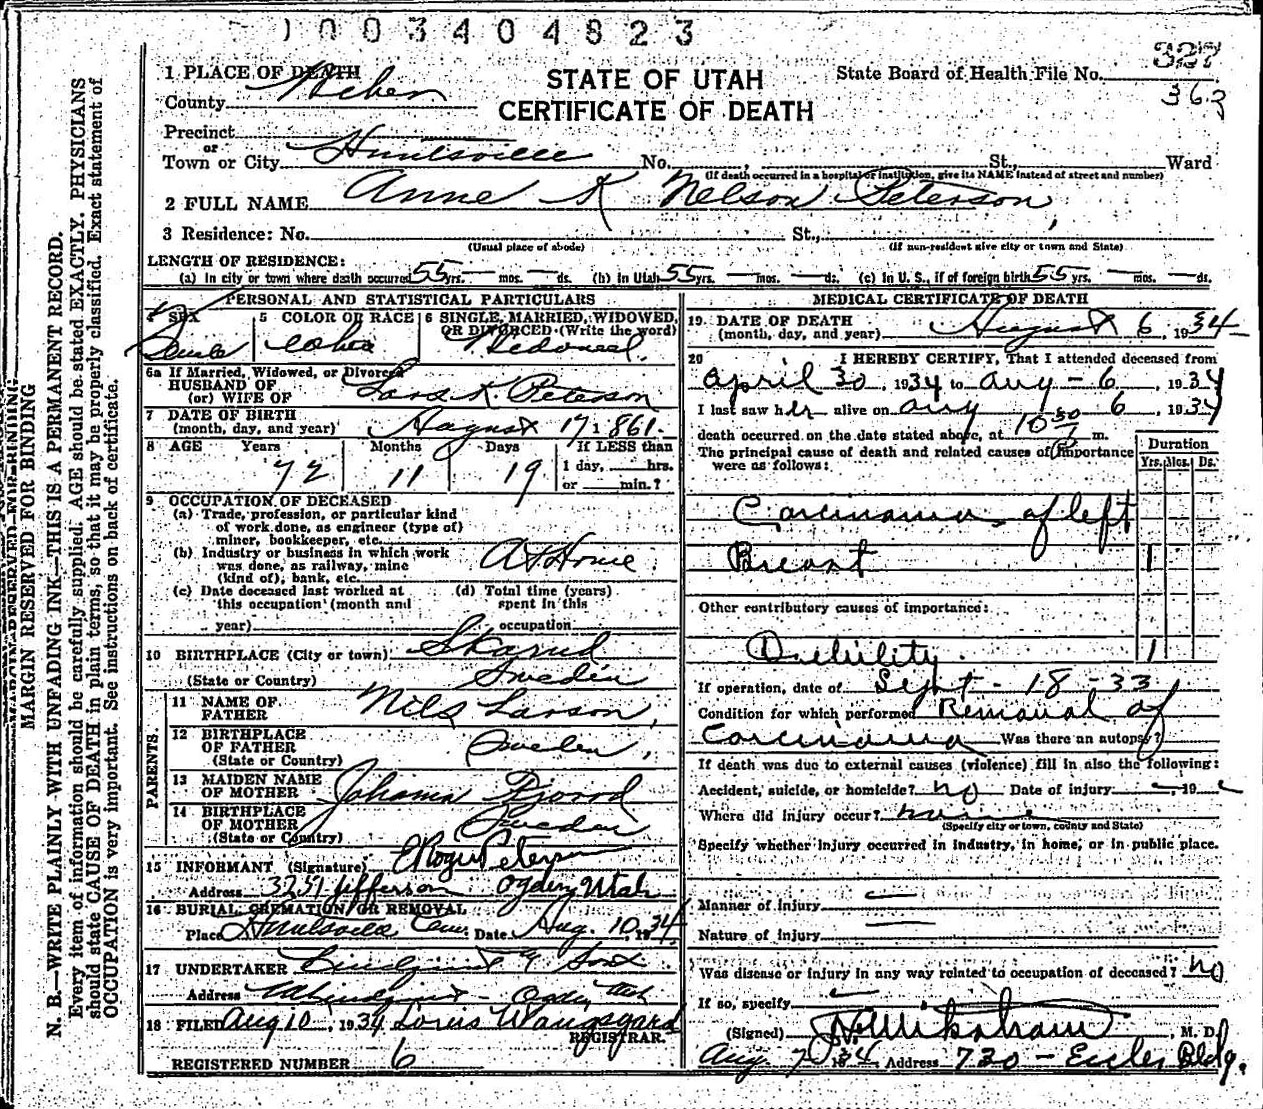 1003404823
1 PLACE OF DEATH
County Weber
STATE OF UTAH
CERTIFICATE OF DEATH
State Board of Health File No. 327
363
Precinct
or
Town or City Huntsville No. , St., Ward
(If death occurred in a hospital or institution, give its NAME instead of street and number)
2 FULL NAME Anne K Nelson Peterson,
3 Residence: No. St.,
(Usual place of abode) (If non-resident give city or town and State)
LENGTH OF RESIDENCE:
(a) In city or town where death occurred 55 yrs. — mos. — ds. (b) In Utah 55 yrs. — mos. — ds. (c) In U. S., if of foreign birth 55 yrs. — mos. — ds.
PERSONAL AND STATISTICAL PARTICULARS
4 SEX
5 COLOR OR RACE
6 SINGLE, MARRIED, WIDOWED, OR DIVORCED (Write the word)
6a If Married, Widowed, or Divorced
HUSBAND OF
(or) WIFE OF Lars K. Peterson
7 DATE OF BIRTH
(month, day, and year) August 17 1861.
8 AGE Years Months Days If LESS than
72 11 19 1 day, hrs.
or min.?
9 OCCUPATION OF DECEASED
(a) Trade, profession, or particular kind
of work done, as engineer (type of)
miner, bookkeeper, etc.
(b) Industry or business in which work
was done, as railway, mine
(kind of), bank, etc. At Home
(c) Date deceased last worked at
this occupation (month and
year)
(d) Total time (years)
spent in this
occupation
10 BIRTHPLACE (City or town)
(State or Country) Sweden
PARENTS.
11 NAME OF
FATHER Nils Larson,
12 BIRTHPLACE
OF FATHER Sweden,
(State or Country)
13 MAIDEN NAME
OF MOTHER
14 BIRTHPLACE
OF MOTHER Sweden
(State or Country)
15 INFORMANT (Signature) E Roger Peterson
Address Jefferson Ogden, Utah
16 BURIAL, CREMATION OR REMOVAL
Place Huntsville Cem. Date Aug. 10, 1934
17 UNDERTAKER Lindquist & Sons
Address Ogden Utah
18 FILED Aug 10, 1934 Louis Wangsgard
REGISTRAR.
REGISTERED NUMBER 6
MEDICAL CERTIFICATE OF DEATH
19. DATE OF DEATH
(month, day, and year) August 6, 1934
20 I HEREBY CERTIFY, That I attended deceased from
April 30, 1934 to Aug - 6, 1934
I last saw her alive on Aug 6, 1934
death occurred on the date stated above, at 10 30 m.
The principal cause of death and related causes of importance
were as follows:
Duration
Yrs. Mos. Ds.
Carcinoma of left
Breast 1
Other contributory causes of importance:
Debility. 1
If operation, date of Sept - 18 - 33
Condition for which performed Removal of
Carcinoma Was there an autopsy?
If death was due to external causes (violence) fill in also the following:
Accident, suicide, or homicide? no Date of injury — 19
Where did injury occur?
(Specify city or town, county and State)
Specify whether injury occurred in industry, in home, or in public place.
Manner of injury —
Nature of injury —
Was disease or injury in any way related to occupation of deceased? no
If so, specify —
(Signed) , M. D.
Aug. 7 1934 Address 730 - Eccles Bldg.
MARGIN RESERVED FOR BINDING
N. B.—WRITE PLAINLY WITH UNFADING INK—THIS IS A PERMANENT RECORD.
Every item of information should be carefully supplied. AGE should be stated EXACTLY. PHYSICIANS
should state CAUSE OF DEATH in plain terms, so that it may be properly classified. Exact statement of
OCCUPATION is very important. See instructions on back of certificate.